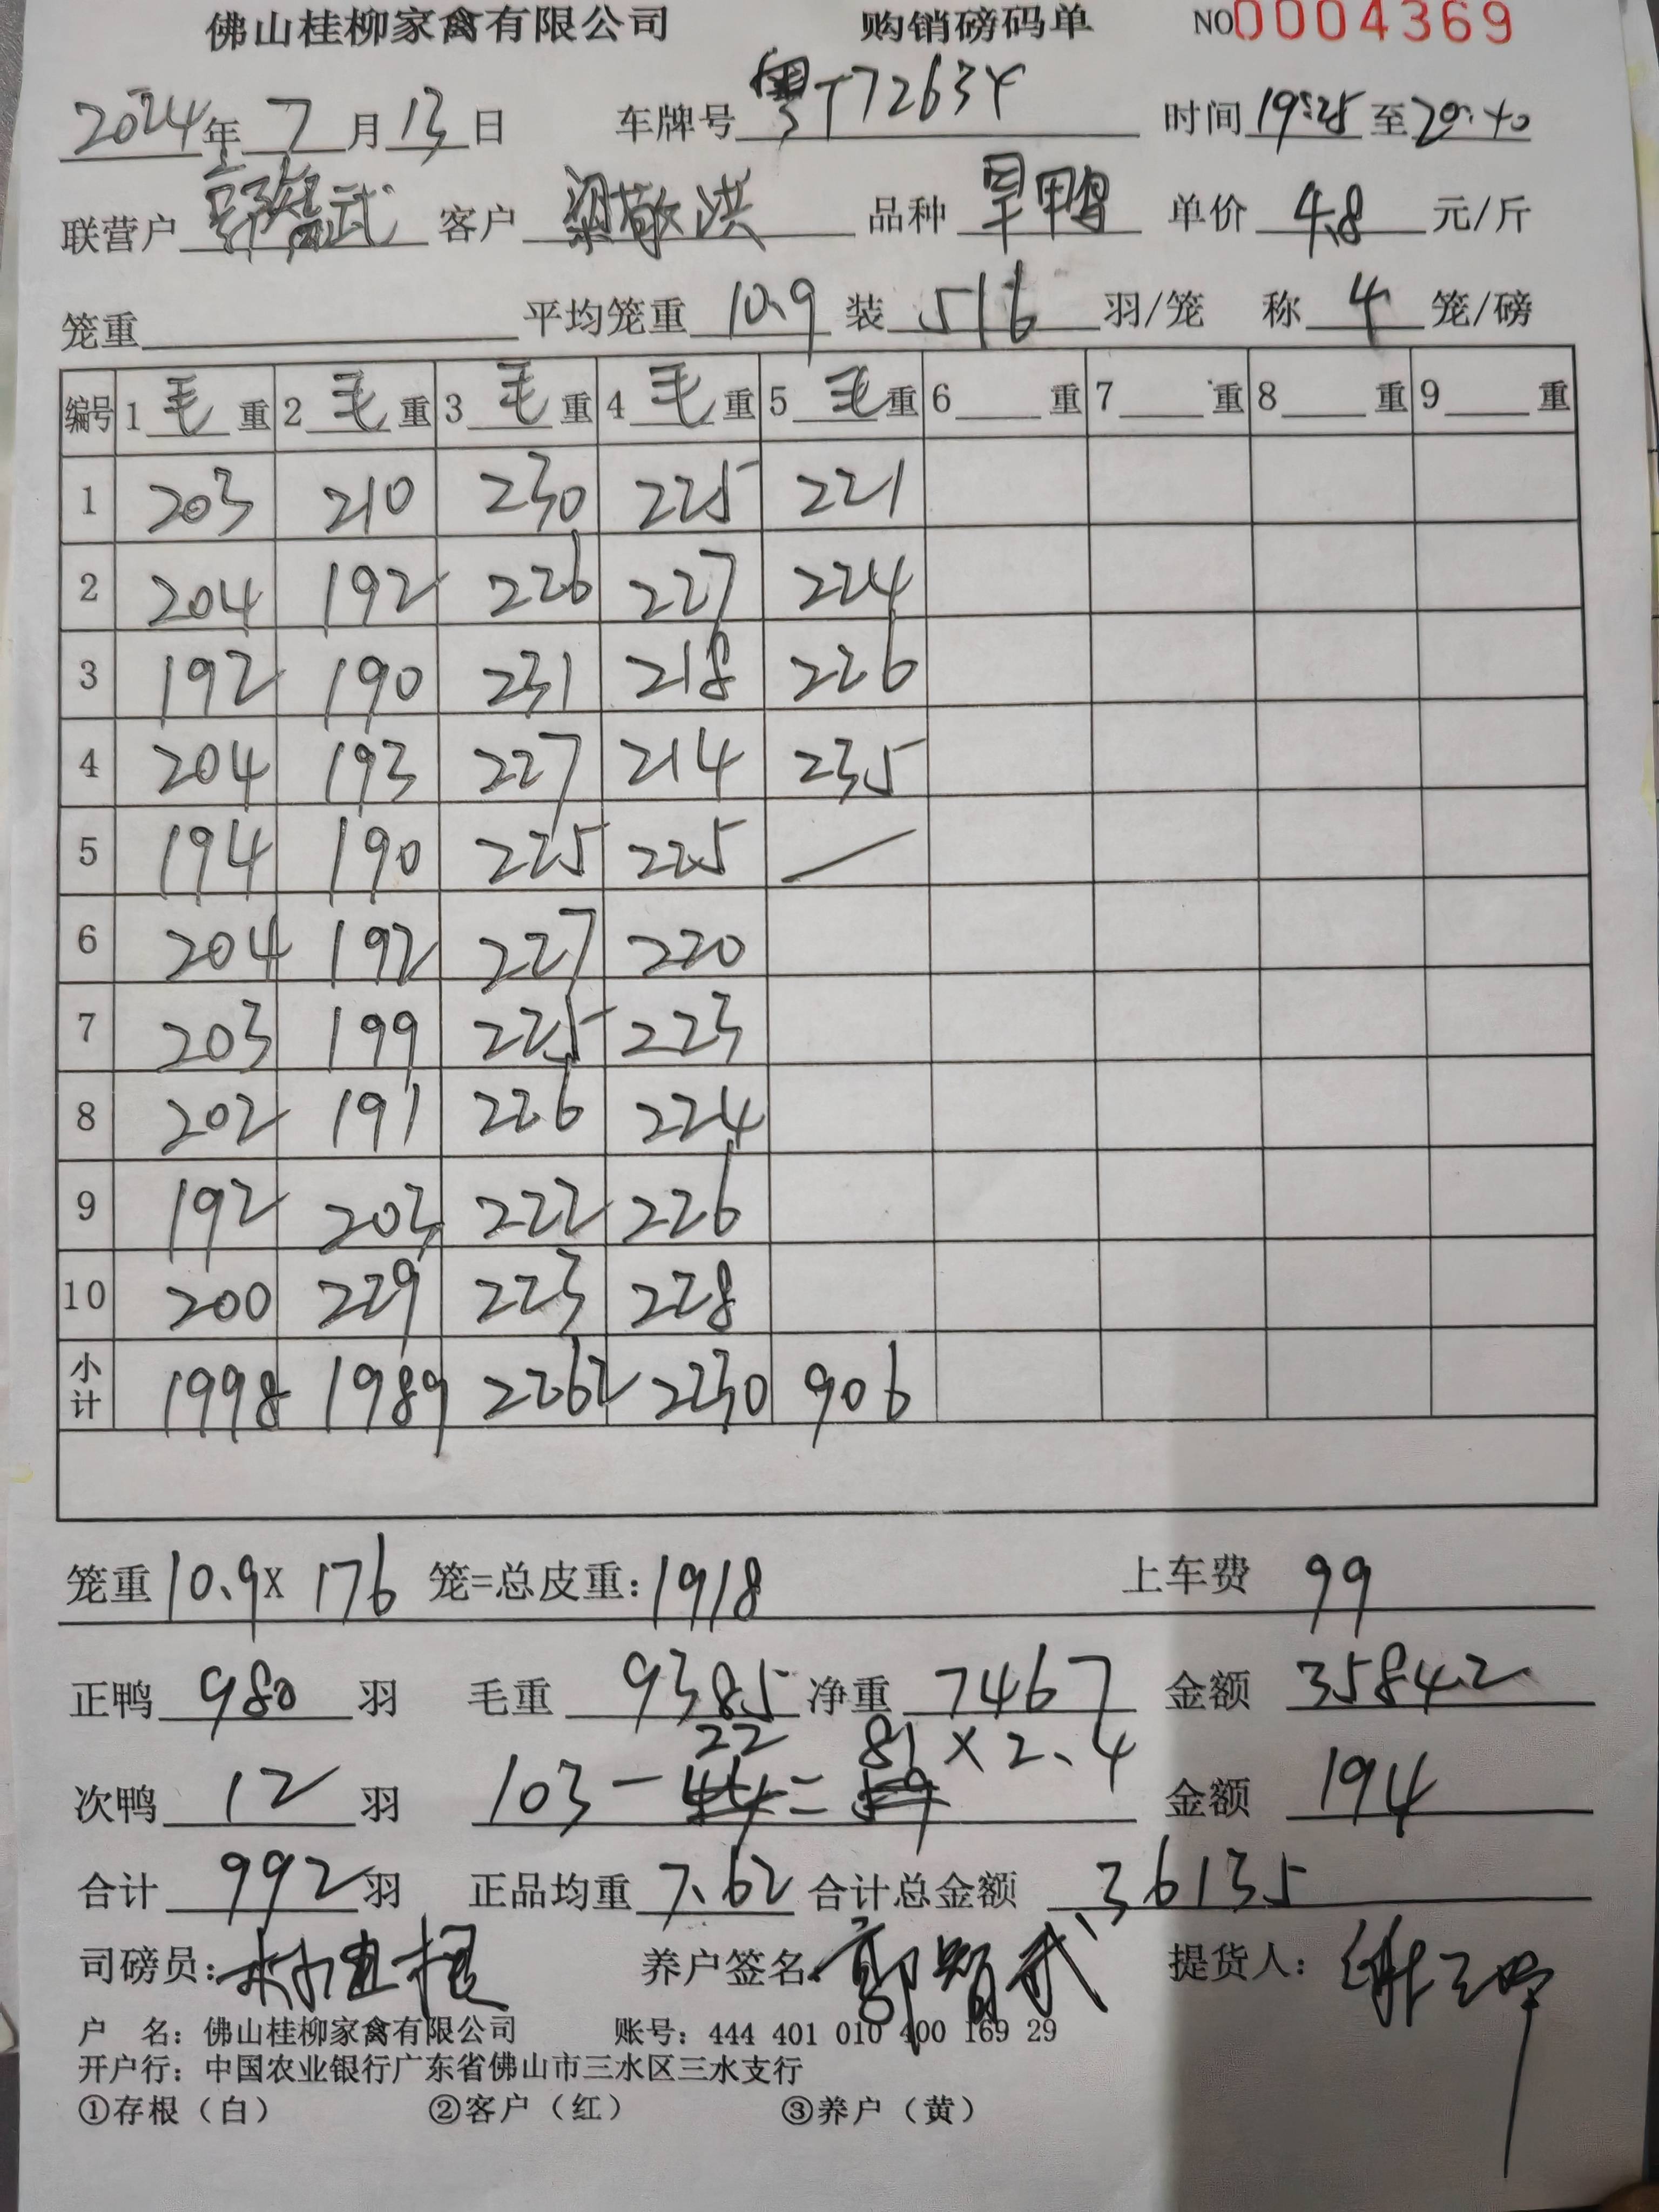 佛山桂柳家禽有限公司 购销磅码单 NO0004369
2024年 7 月 13 日 车牌号 粤T72634 时间 19:25 至 20:40
联营户 郭智武 客户 梁敬洪 品种 旱鸭 单价 4.8 元/斤
笼重 平均笼重 10.9 装 5/6 羽/笼 称 4 笼/磅
编号 1 毛 重 2 毛 重 3 毛 重 4 毛 重 5 毛 重 6 重 7 重 8 重 9 重
1 203 210 230 225 221
2 204 192 226 227 224
3 192 190 231 218 226
4 204 193 227 214 235
5 194 190 225 225 /
6 204 192 227 220
7 203 199 225 223
8 202 191 226 224
9 192 203 222 226
10 200 229 223 228
小计 1998 1989 2262 2230 906
笼重 10.9 X 176 笼=总皮重: 1918 上车费 99
正鸭 980 羽 毛重 9385 净重 7467 金额 35842
22 81 × 2.4
次鸭 12 羽 103 - 44 = 59 金额 194
合计 992 羽 正品均重 7.62 合计总金额 36135
司磅员: 养户签名: 郭智武 提货人:
户 名: 佛山桂柳家禽有限公司 账号: 444 401 010 400 169 29
开户行: 中国农业银行广东省佛山市三水区三水支行
①存根（白） ②客户（红） ③养户（黄）